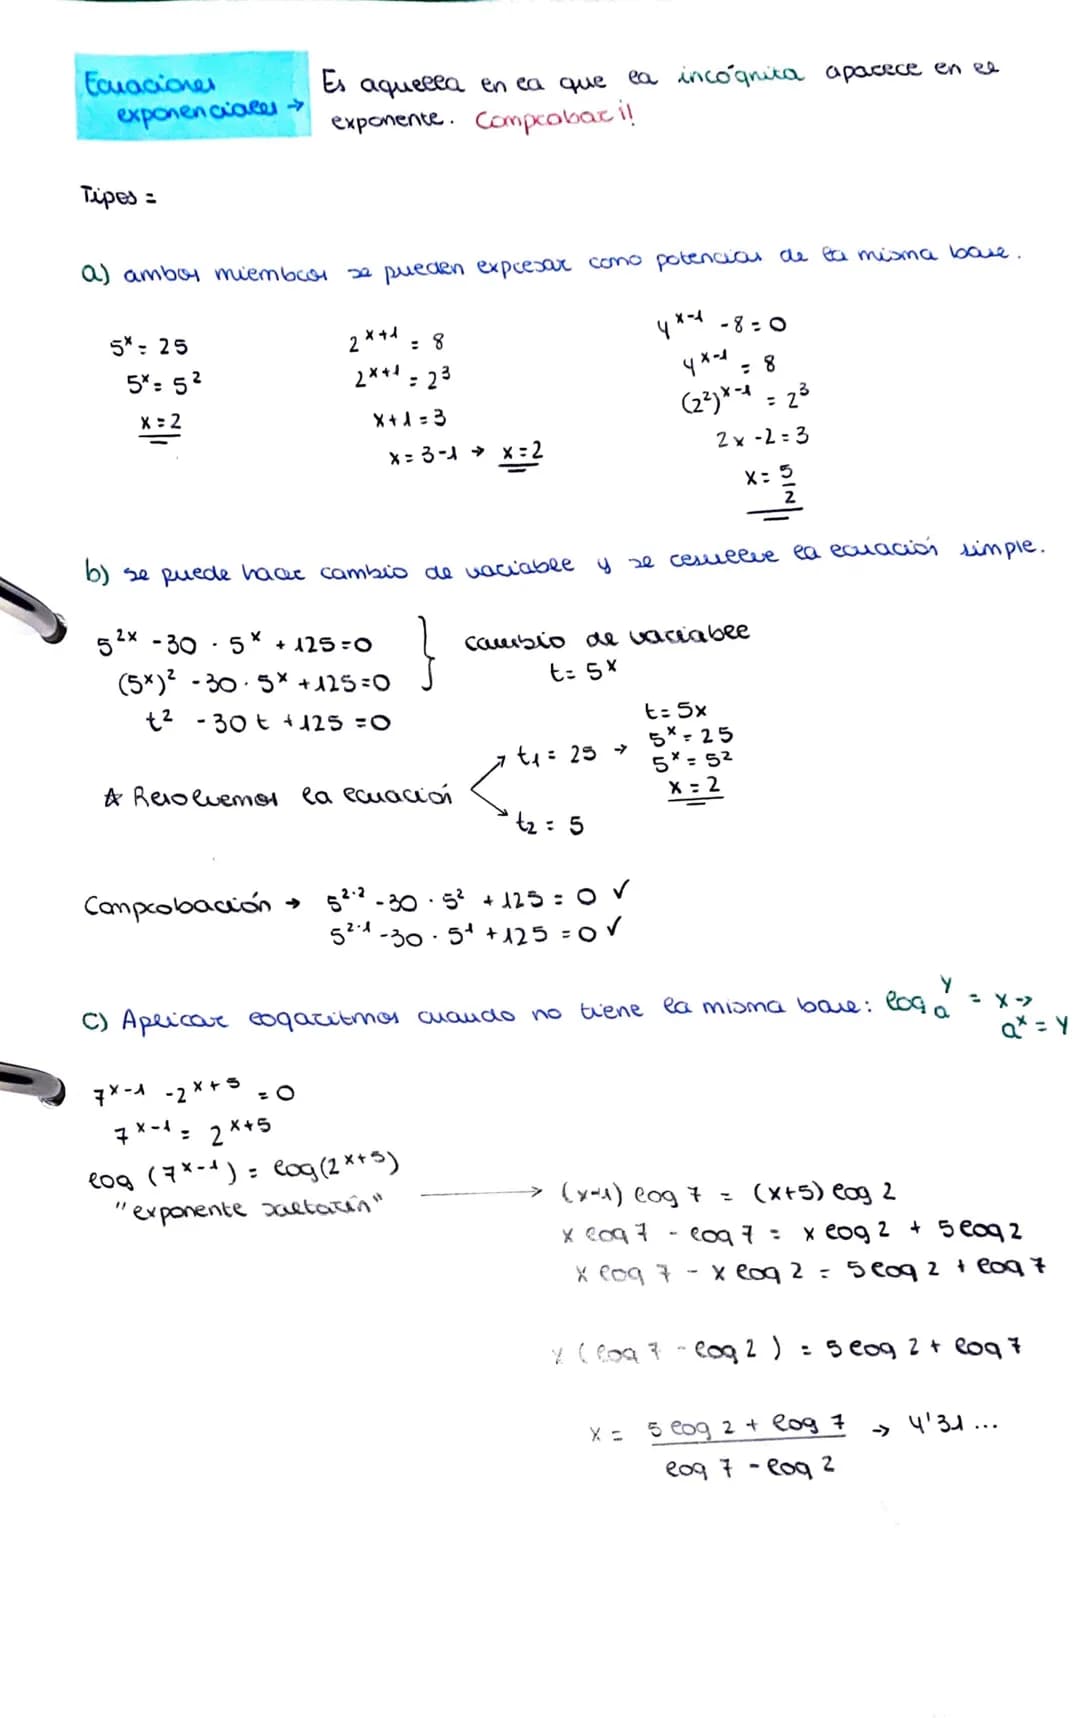 Ecuaciones exponenciales →
Es aquella en la que la incógnita aparece en el
exponente. Comprobar i!
Tipos =
a) ambos miembros se pueden expresar como potencias de la misma base.
5^x = 25
5^x = 5^2
x = 2
2^(x+1) = 8
2^(x+1) = 2^3
x+1 = 3
x = 3-1 → x = 2
4^(x-1) - 8 = 0
4^(x-1) = 8
(2^2)^(x-1) = 2^3
2x - 2 = 3
x = 5/2
b) se puede hacer cambio de variable y se resuelve la ecuación simple.
5^(2x) - 30 · 5^x + 125 = 0
(5^x)^2 - 30 · 5^x + 125 = 0
t^2 - 30t + 125 = 0
cambio de variable
t = 5^x
☆ Resolvemos la ecuación
t₁ = 25 →
t = 5x
5^x = 25
5^x = 5^2
x = 2
t₂ = 5
Comprobación → 5^(2·2) - 30 · 5^2 + 125 = 0 ✓
5^(2·1) - 30 · 5^1 + 125 = 0 ✓
c) Aplicar logaritmos cuando no tiene la misma base: log_a^y = x →
a^x = y
7^(x-1) - 2^(x+5) = 0
7^(x-1) = 2^(x+5)
log (7^(x-1)) = log (2^(x+5))
"exponente saltarín"
→ (x-1) log 7 = (x+5) log 2
x log 7 - log 7 = x log 2 + 5 log 2
x log 7 - x log 2 = 5 log 2 + log 7
x (log 7 - log 2) = 5 log 2 + log 7
x = (5 log 2 + log 7)/(log 7 - log 2) → 4'31...